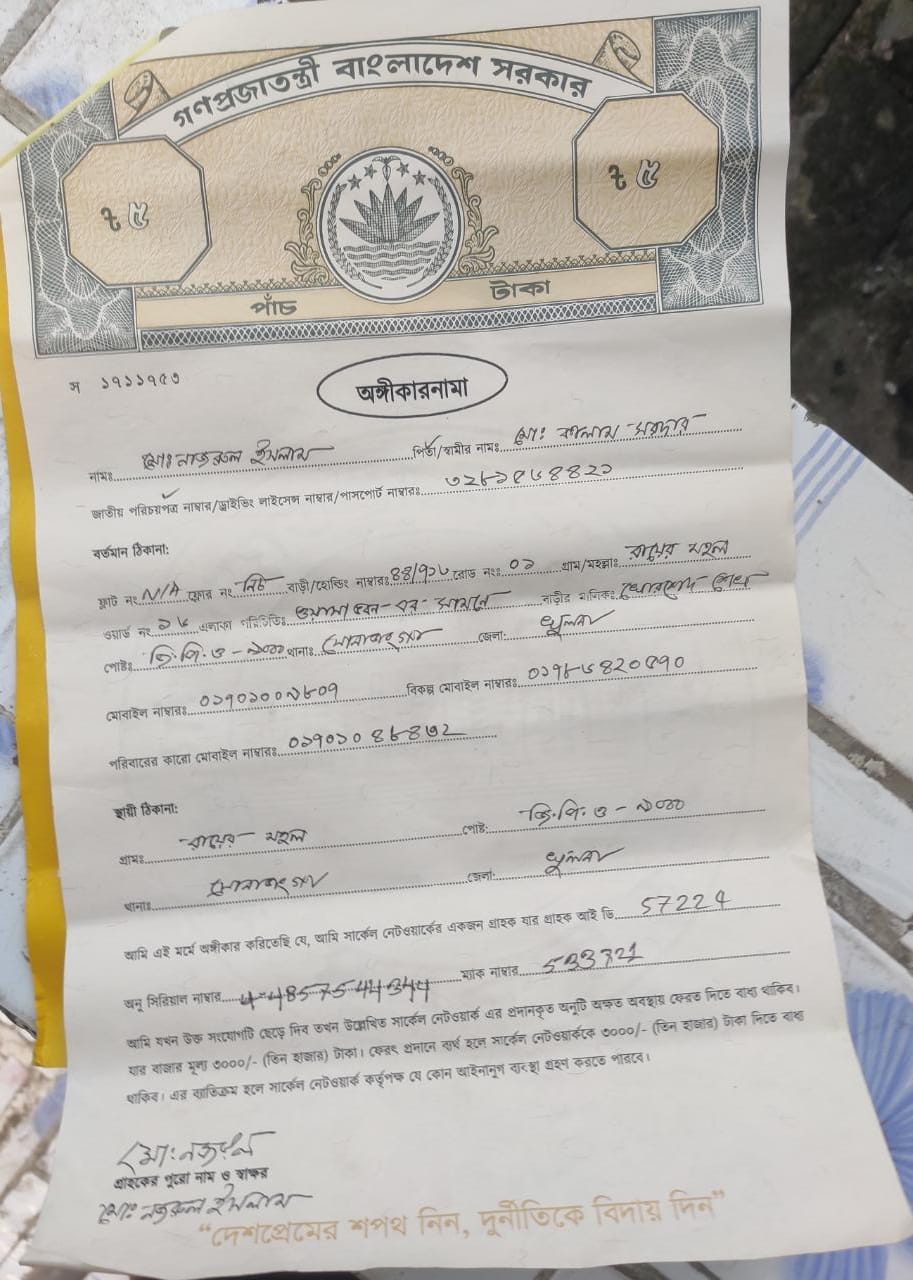 গণপ্রজাতন্ত্রী বাংলাদেশ সরকার
৳ ৫ ৳ ৫
পাঁচ টাকা
অঙ্গীকারনামা
নামঃ মোঃ নজরুল ইসলাম পিতা/স্বামীর নামঃ মোঃ কালাম সরদার
জাতীয় পরিচয়পত্র নাম্বার/ড্রাইভিং লাইসেন্স নাম্বার/পাসপোর্ট নাম্বারঃ
বর্তমান ঠিকানা:
ফ্লাট নং N/A ফ্লোর নং নিচ বাড়ী/হোল্ডিং নাম্বারঃ রোড নংঃ ০১ গ্রাম/মহল্লাঃ রায়ের মহল
ওয়ার্ড নং ১৬ এলাকা পরিচিতিঃ ওয়াসা ভবন এর সামনে বাড়ীর মালিকঃ
পোষ্টঃ জি.পি.ও - ৯০০০ থানাঃ জেলা: খুলনা
মোবাইল নাম্বারঃ বিকল্প মোবাইল নাম্বারঃ
পরিবারের কারো মোবাইল নাম্বারঃ
স্থায়ী ঠিকানা:
গ্রামঃ রায়ের মহল পোষ্ট: জি.পি.ও - ৯০০০
থানাঃ জেলা: খুলনা
আমি এই মর্মে অঙ্গীকার করিতেছি যে, আমি সার্কেল নেটওয়ার্কের একজন গ্রাহক যার গ্রাহক আই ডি 57224
অনু সিরিয়াল নাম্বার ম্যাক নাম্বার
আমি যখন উক্ত সংযোগটি ছেড়ে দিব তখন উল্লেখিত সার্কেল নেটওয়ার্ক এর প্রদানকৃত অনুটি অক্ষত অবস্থায় ফেরত দিতে বাধ্য থাকিব।
যার বাজার মূল্য ৩০০০/- (তিন হাজার) টাকা। ফেরৎ প্রদানে ব্যর্থ হলে সার্কেল নেটওয়ার্ককে ৩০০০/- (তিন হাজার) টাকা দিতে বাধ্য
থাকিব। এর ব্যতিক্রম হলে সার্কেল নেটওয়ার্ক কর্তৃপক্ষ যে কোন আইনানুগ ব্যবস্থা গ্রহণ করতে পারবে।
মোঃ নজরুল
গ্রাহকের পুরো নাম ও স্বাক্ষর
মোঃ নজরুল ইসলাম
“দেশপ্রেমের শপথ নিন, দুর্নীতিকে বিদায় দিন”